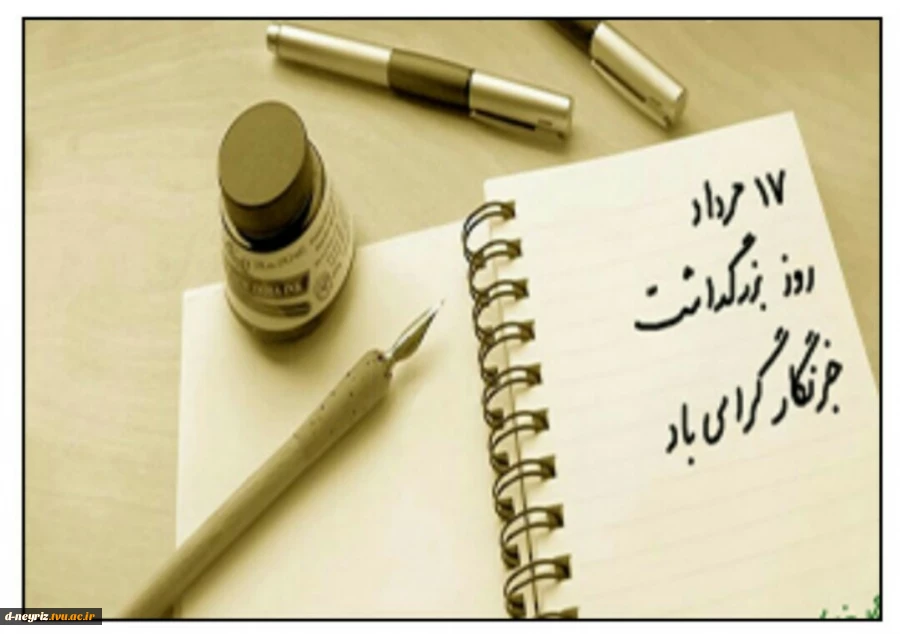 ۱۷ مرداد
روز بزرگداشت
خبرنگار گرامی باد
d-neyriz.tvu.ac.ir